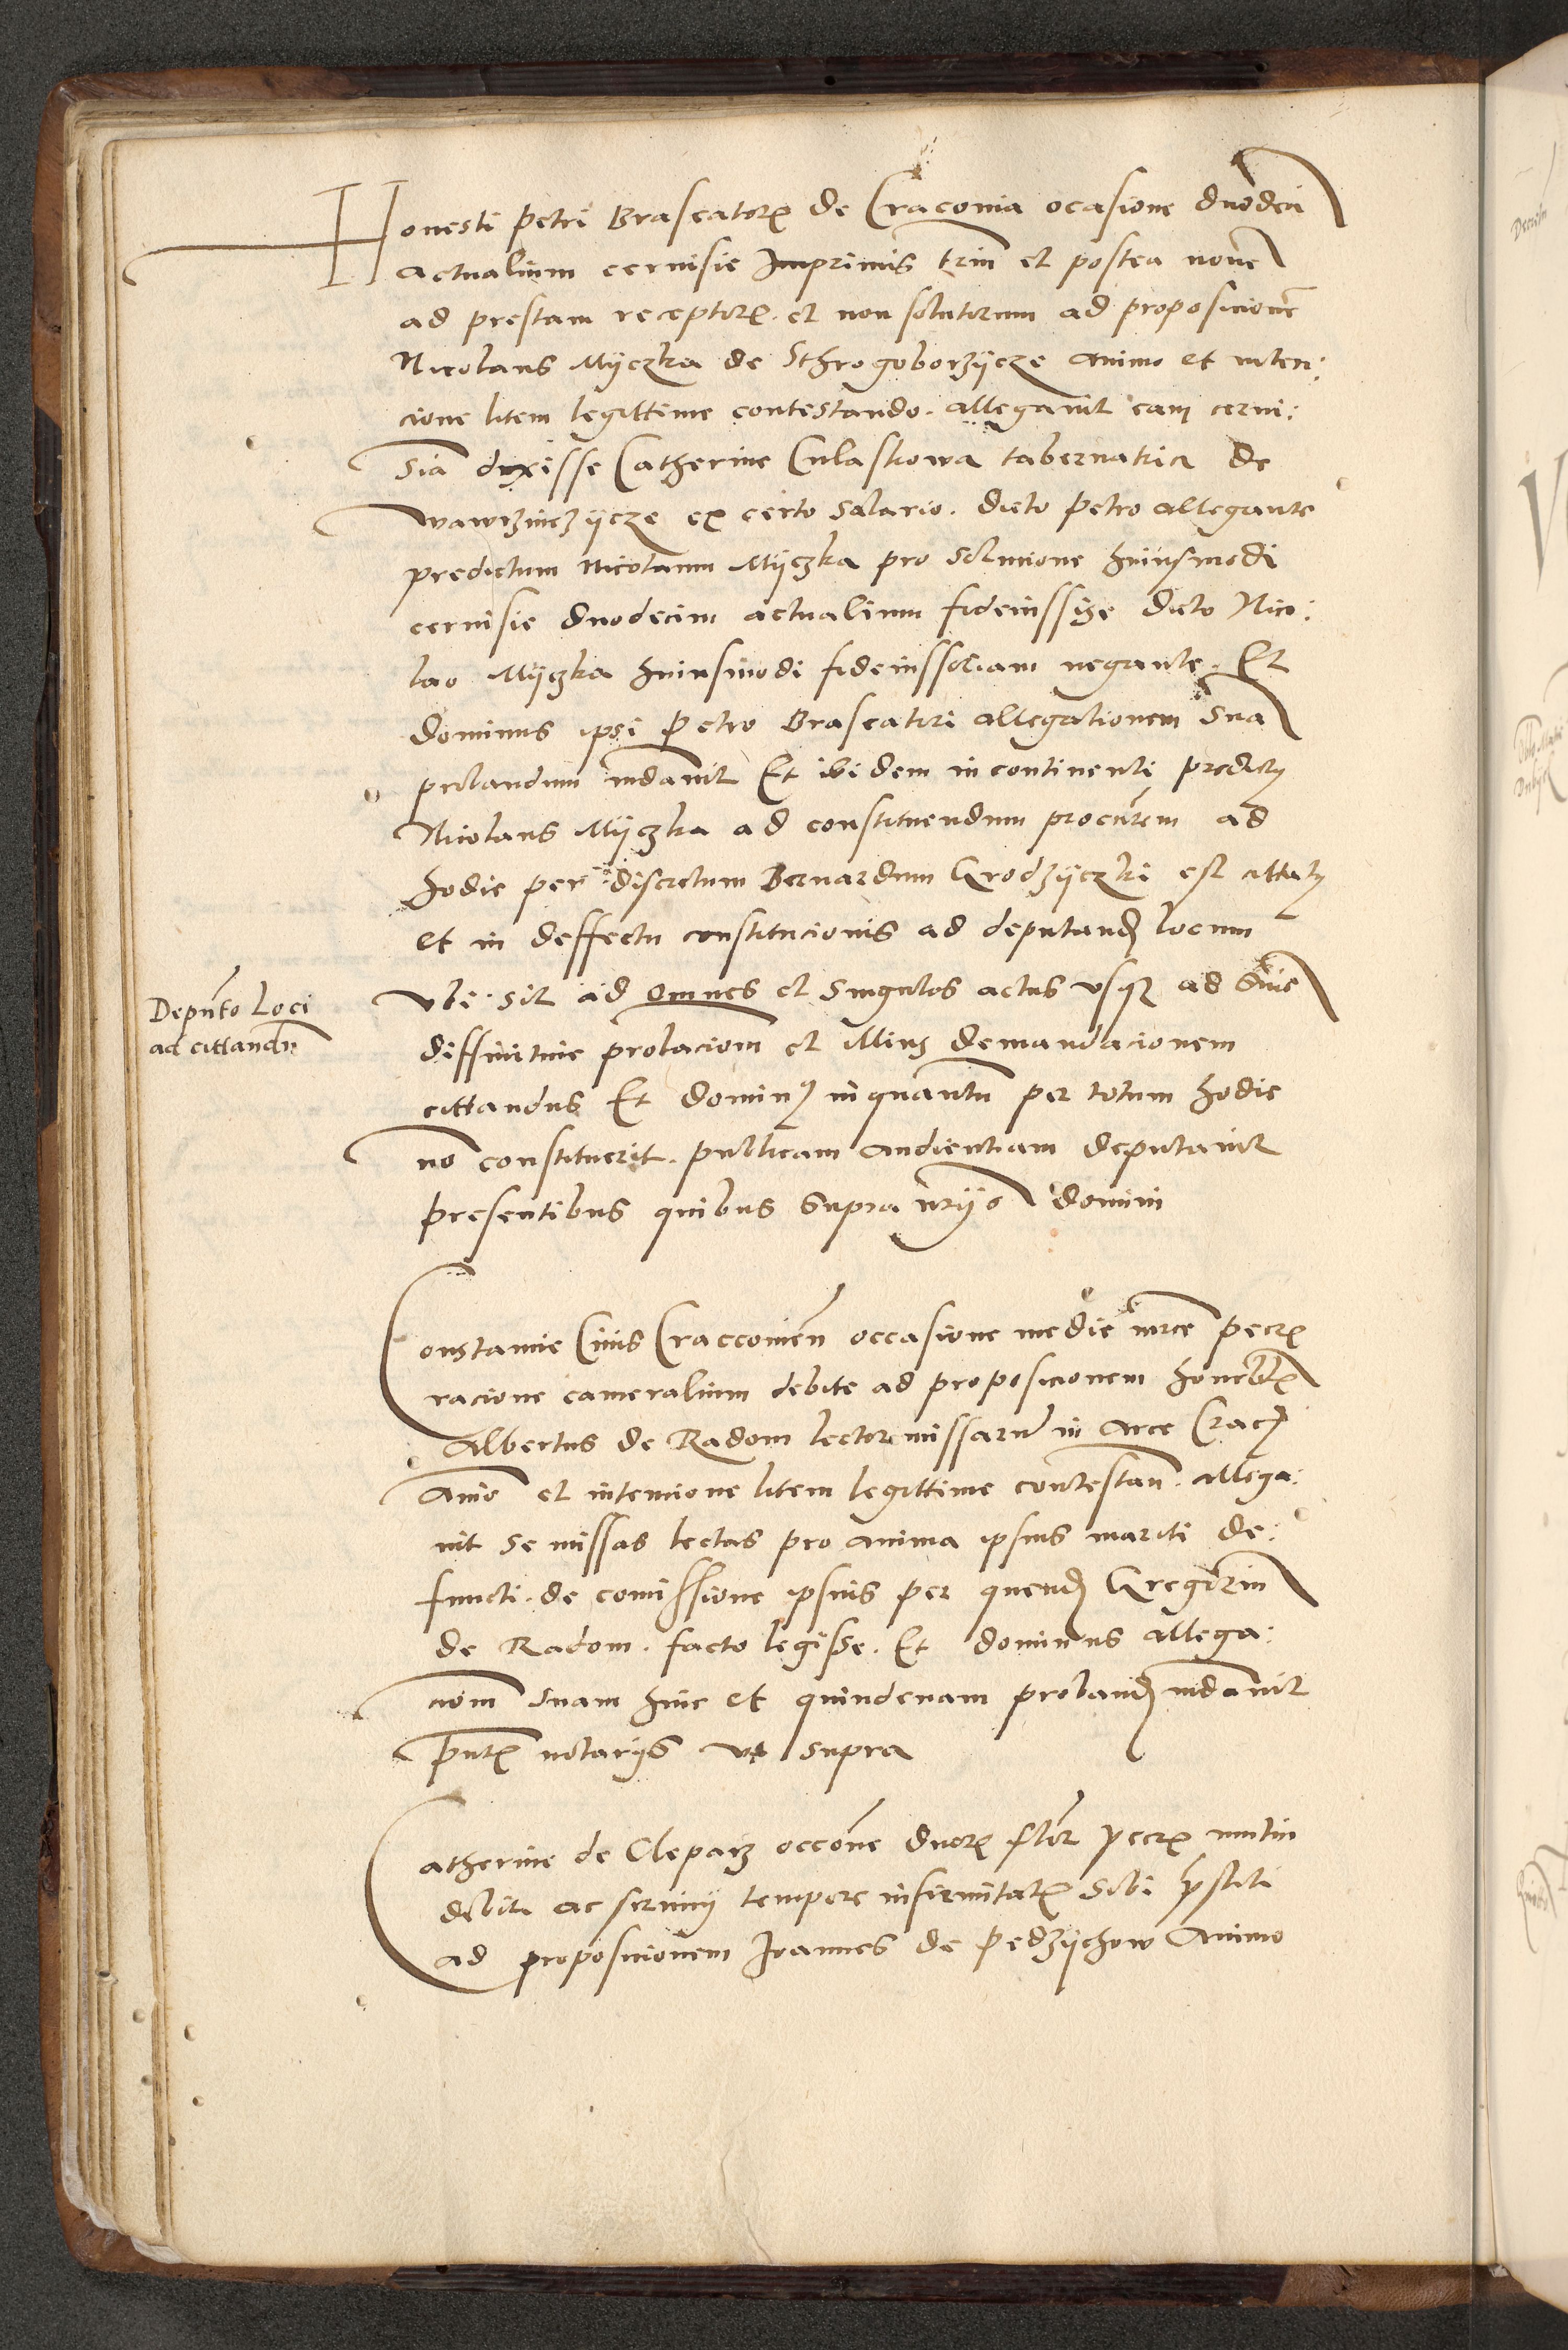 Honesti Petri Braseatoris de Cracovia ocasione duodeci
actualium cervisie Imprimis trin et postea nove
ad prestam receptor. et non solutorum ad proposicione
Nicolaus Myczka de Sthrogoborzycze animo et inten:
cione litem legittime contestando. allegavit eam cervi:
sia duxisse Catherine Culaskowa tabernatrica de
wawrzinczycze ex certo salario. dicto Petro allegante
predictum Nicolaum Myczka pro solucione huiusmodi
cervisie duodecim actualium fideiussisse dicto Nico:
lao Myczka huiusmodi fideiussoriam negante. Et
dominus ipsi Petro Braseatori allegationem sua
probandum mdavit Et ibidem incontinenti predictus
Nicolaus Myczka ad constituendum procurem ad
hodie per discretum Bernardum Grodzyczki est cittatus
et in deffectu constitucionis ad deputand locum
Deputo Loci
ad cittandu
vbi sit ad omnes et singulos actus usque ad snie
diffinitive prolaciom et illius demandacionem
cittandus Et dominus inquantu per totum hodie
no constituerit. publicam audientiam deputavit
presentibus quibus supra nrijs domini
Constancie Civis Craccovien occasione medie mrce pecr
racione cameralium debite ad proposicionem honorabilis
Albertus de Radom lector missaru in Arce Crac
Animo et intencione litem legittime contestan. allega:
vit se missas lectas pro anima ipsius mariti de:
functi. de comissione ipsius per quend Gregorium
de Radom. facto legisse. Et dominus allega:
ciom suam hinc et quindenam proband mdavit
pntibus notarijs ut supra
Catherine de Cleparz occone duor flor pecr mutui
debiti ac servicij tempore infirmitatis sibi pstiti
ad proposicionem Joannes de Pedzychow Animo